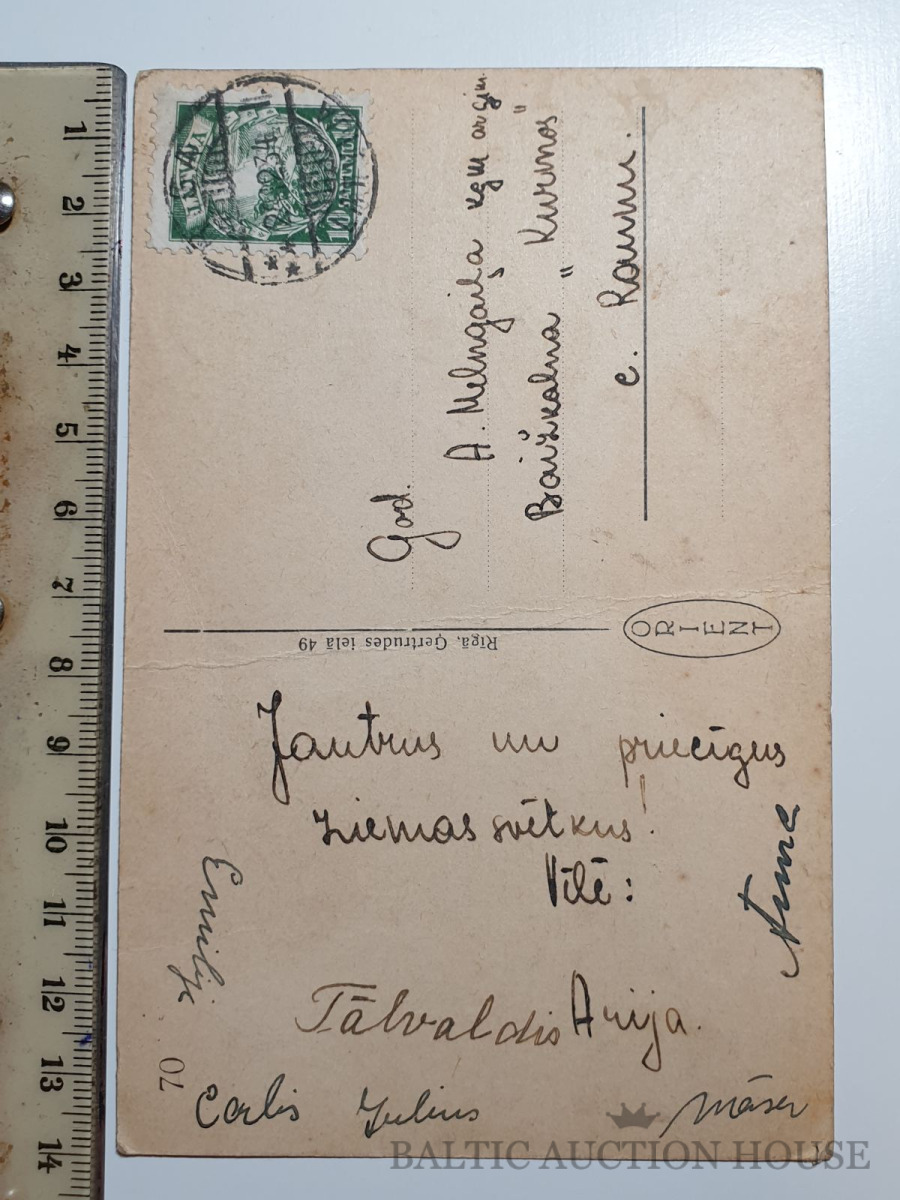 LATVIJA
10 SANTIMU 10
God.
A. Melngaiļa kgm ar ģim.
Baižkalna „Kurmos"
c. Raunu.
Rīgā, Ģertrudes ielā 49
ORIENT
Jautrus un priecīgus
ziemassvētkus!
Vēlē:
Emilija
Anna
Tālvaldis Arija.
Carlis Julius
70
1 2 3 4 5 6 7 8 9 10 11 12 13 14
BALTIC AUCTION HOUSE